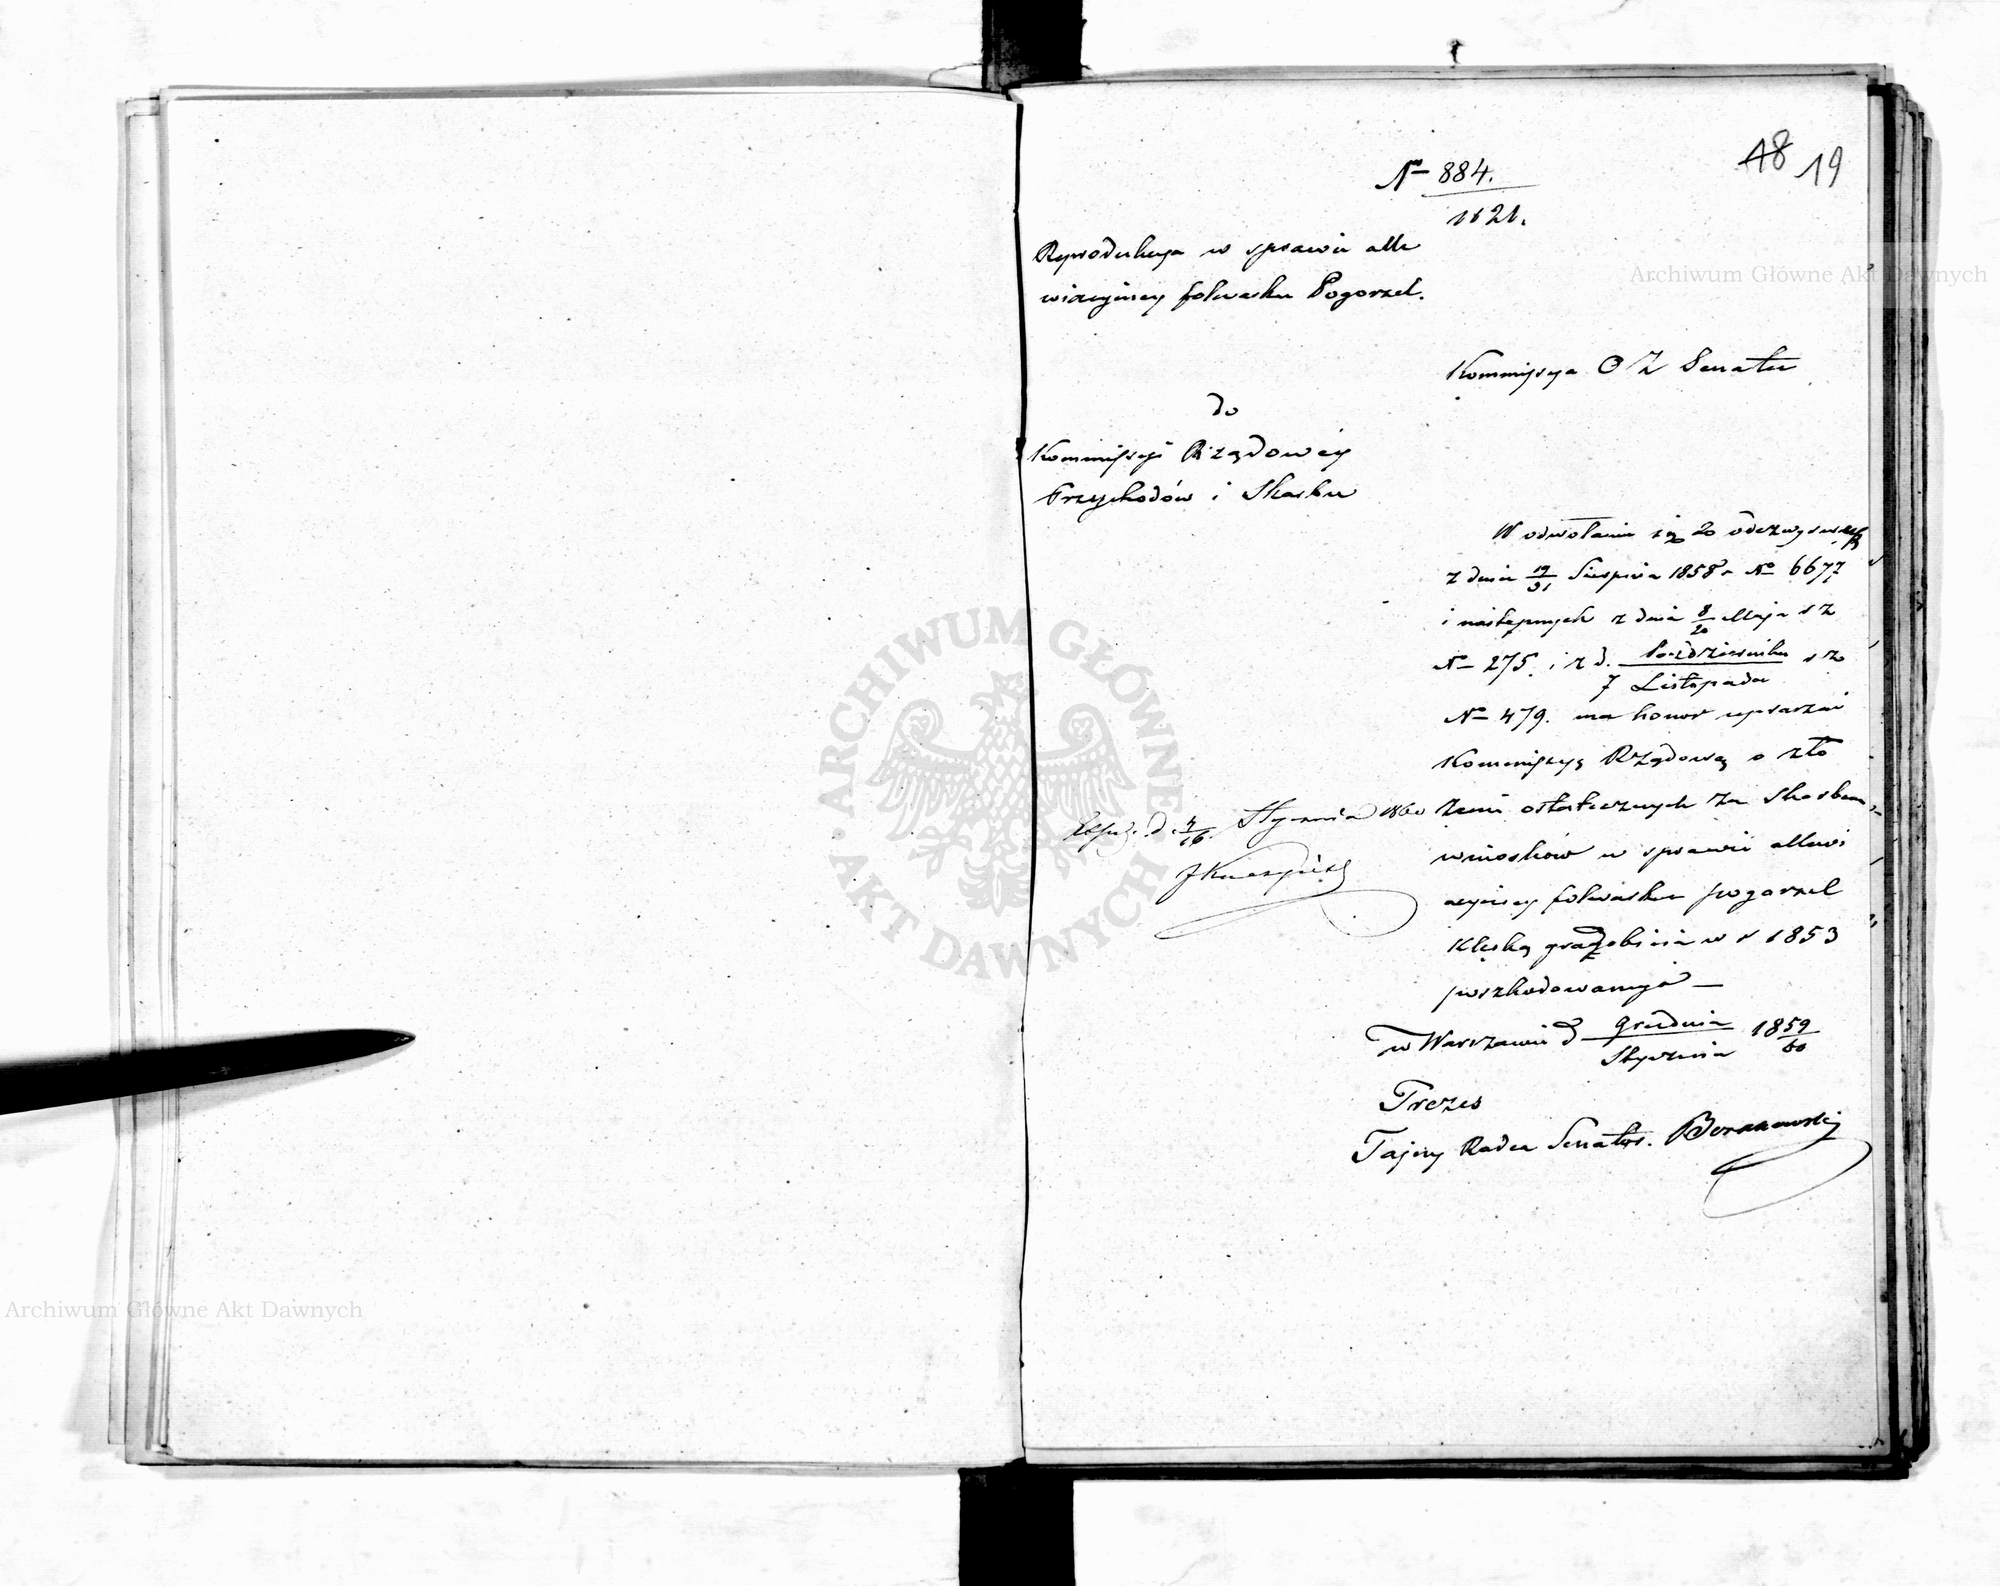 48 19
№ 884.
1621.
Reprodukcya w sprawie alle
wiacyjney folwarku Pogorzel.
Kommissya O Z Senatu
do
Kommissyi Rządowey
Przychodów i Skarbu
W odwołaniu się do odezwy swey
z dnia 19/31 Sierpnia 1858 r № 6677
i następnych z dnia 8/20 Maja r z
№ 275. i z d. Października / 7 Listopada r z
№ 479. ma honor upraszać
Kommissyę Rządową o zło
żenie ostatecznych za Skarbem
wniosków w sprawie allewi
acyjney folwarku pogorzel
Klęską gradobicia w r 1853
poszkodowanego —
w Warszawie d Grudnia / Stycznia 1859/60
Prezes
Tajny Radca Senator.
d. 4/16. Stycznia 1860
Archiwum Główne Akt Dawnych
Archiwum Główne Akt Dawnych
ARCHIWUM GŁÓWNE
AKT DAWNYCH